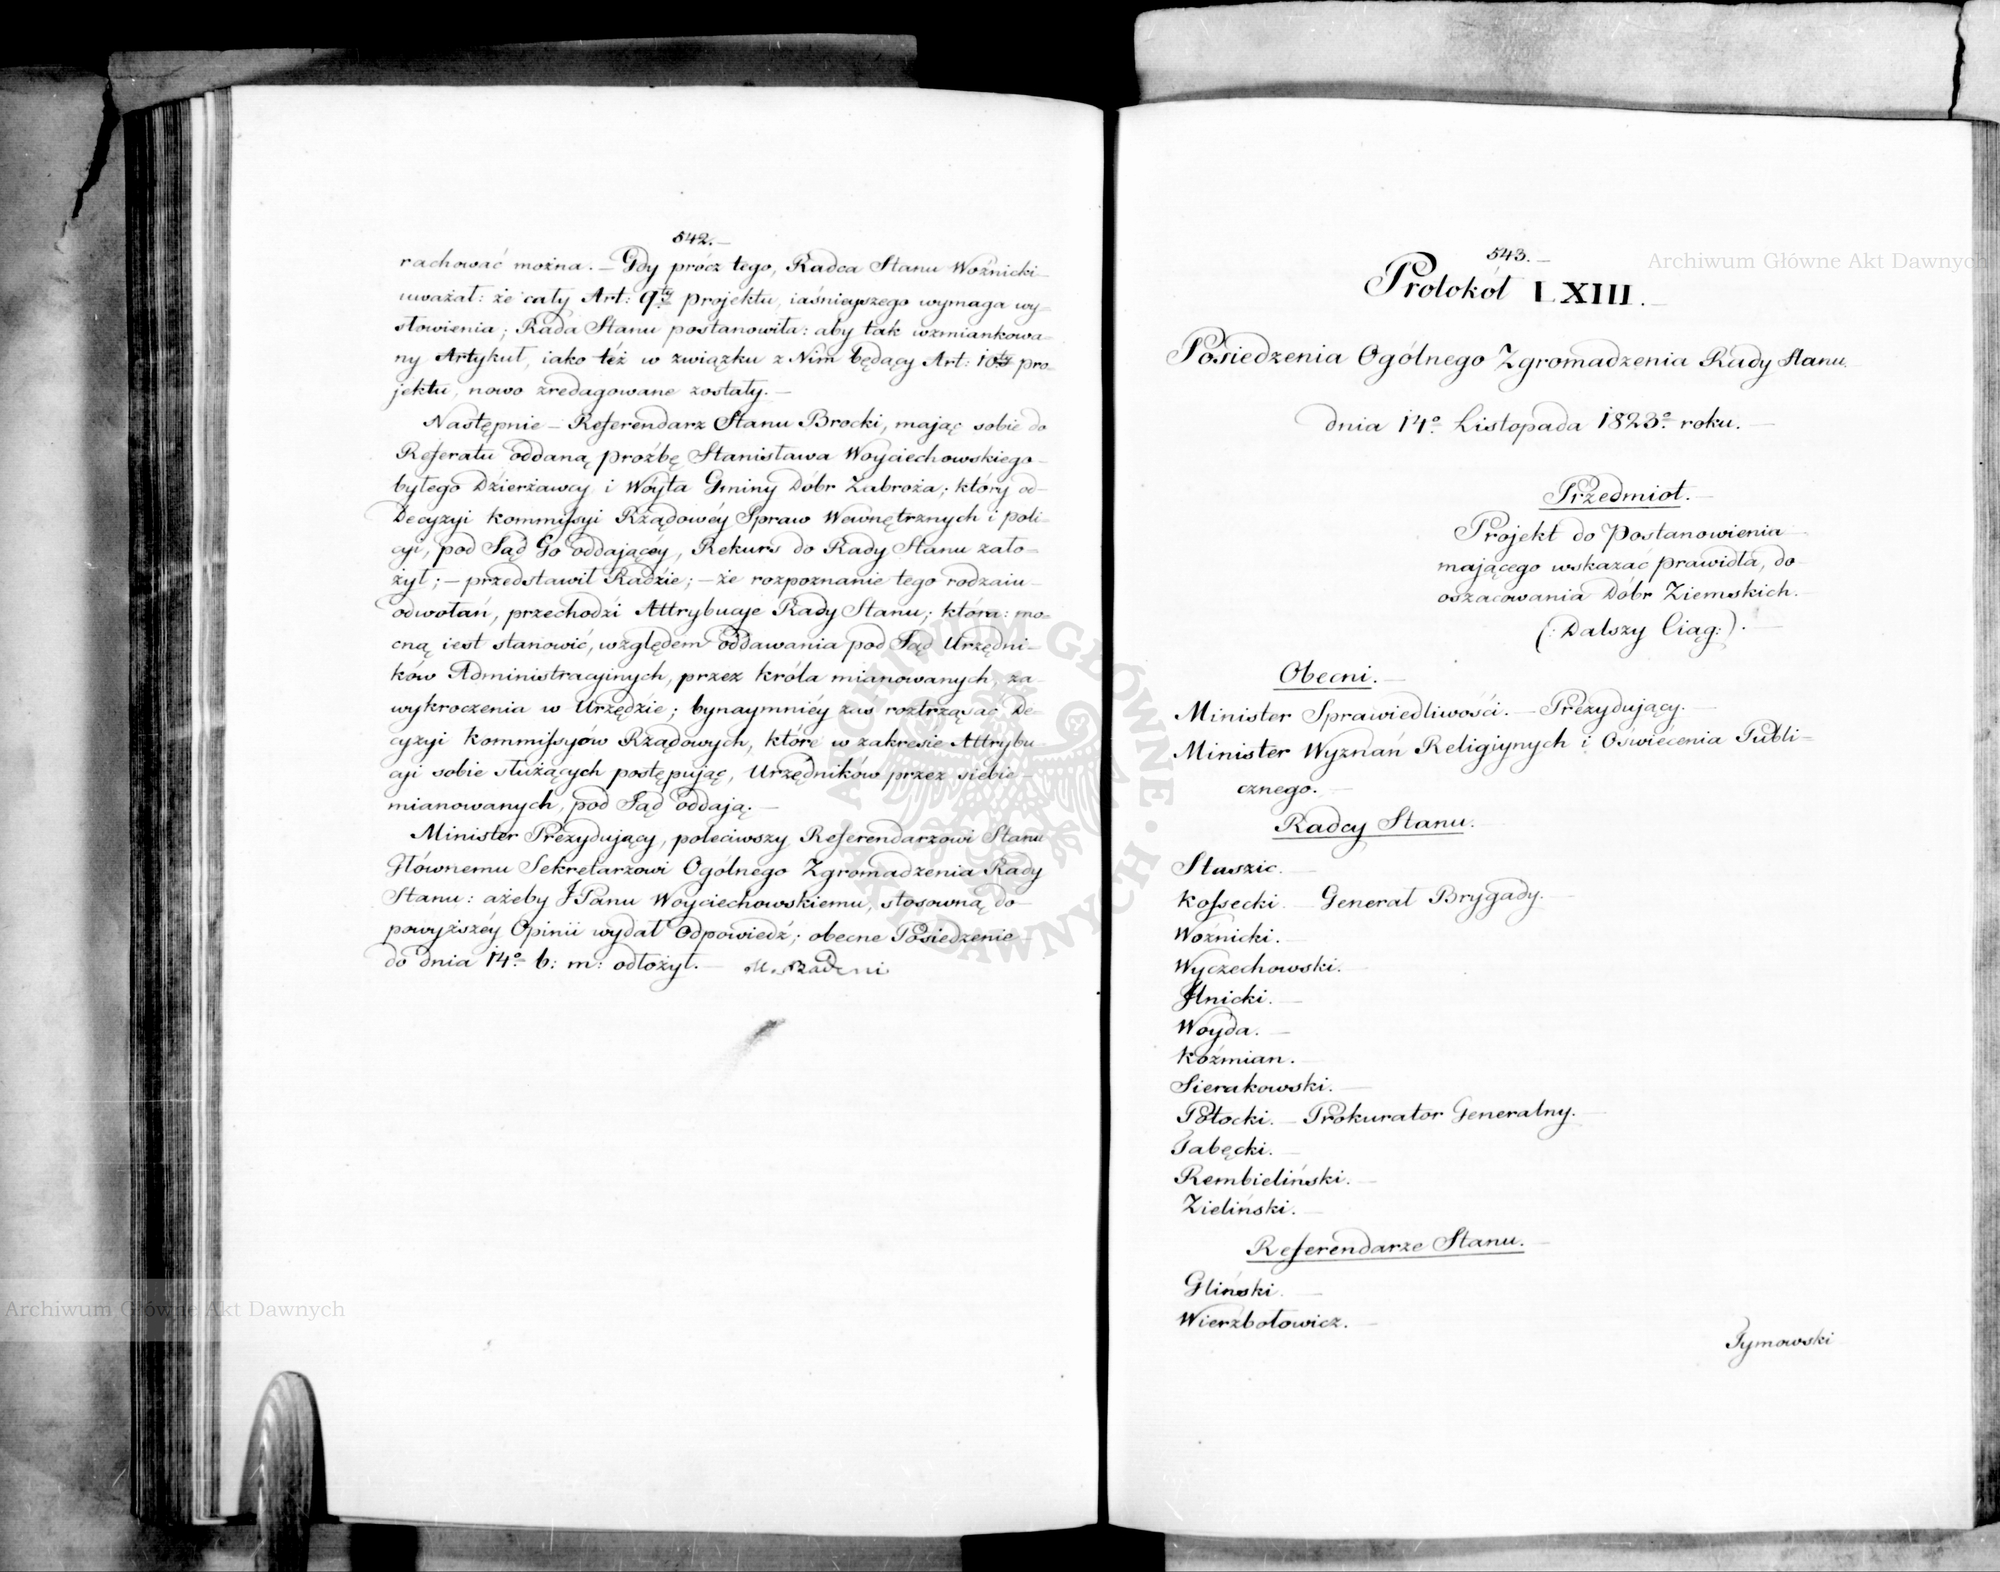 542.
rachować można. — Gdy prócz tego, Radca Stanu Woźnicki
uważał: że cały Art: 9ty projektu, iaśnieyszego wymaga wy-
słowienia; Rada Stanu postanowiła: aby tak wzmiankowa-
ny Artykuł, iako też w związku z Nim będący Art: 10ty pro-
jektu, nowo zredagowane zostały. —
Następnie — Referendarz Stanu Brocki, mając sobie do
Referatu oddaną proźbę Stanisława Woyciechowskiego
byłego Dzierżawcy i Wóyta Gminy Dóbr Zabroża; który od
Decyzyi Kommissyi Rządowéy Spraw Wewnętrznych i poli-
cyi, pod Sąd Go oddaiącéy, Rekurs do Rady Stanu zało-
żył; — przedstawił Radzie; — że rozpoznanie tego rodzaiu
odwołań, przechodzi Attrybucye Rady Stanu; która: mo-
cną iest stanowić, względem oddawania pod Sąd Urzędni-
ków Administracyinych, przez króla mianowanych, za
wykroczenia w Urzędzie; bynaymniéy zaś roztrząsać De-
cyzyi Kommissyów Rządowych, które w zakresie Attrybu-
cyi sobie służących postępując, Urzędników przez siebie
mianowanych, pod Sąd oddają. —
Minister Prezydujący, poleciwszy Referendarzowi Stanu
Głównemu Sekretarzowi Ogólnego Zgromadzenia Rady
Stanu: ażeby JPanu Woyciechowskiemu, stosowną do
powyższéy Opinii wydał Odpowiedź; obecne Posiedzenie
do dnia 14o b: m: odłożył. — M. Badeni
543. —
Protokół LXIII. —
Posiedzenia Ogólnego Zgromadzenia Rady Stanu
dnia 14o Listopada 1823o roku. —
Przedmiot. —
Projekt do Postanowienia
mającego wskazać prawidła, do
oszacowania Dóbr Ziemskich. —
(: Dalszy Ciąg :). —
Obecni. —
Minister Sprawiedliwości. — Prezydujący. —
Minister Wyznań Religiynych i Oświécenia Publi-
cznego. —
Radcy Stanu. —
Staszic. —
Kossecki. — Generał Brygady. —
Woźnicki. —
Wyczechowski. —
Lnicki. —
Woyda. —
Koźmian. —
Sierakowski. —
Potocki. — Prokurator Generalny. —
Tabęcki. —
Rembieliński. —
Zieliński. —
Referendarze Stanu. —
Gliński. —
Wierzbołowicz. —
Tymowski
Archiwum Główne Akt Dawnych
Archiwum Główne Akt Dawnych
ARCHIWUM GŁÓWNE AKT DAWNYCH